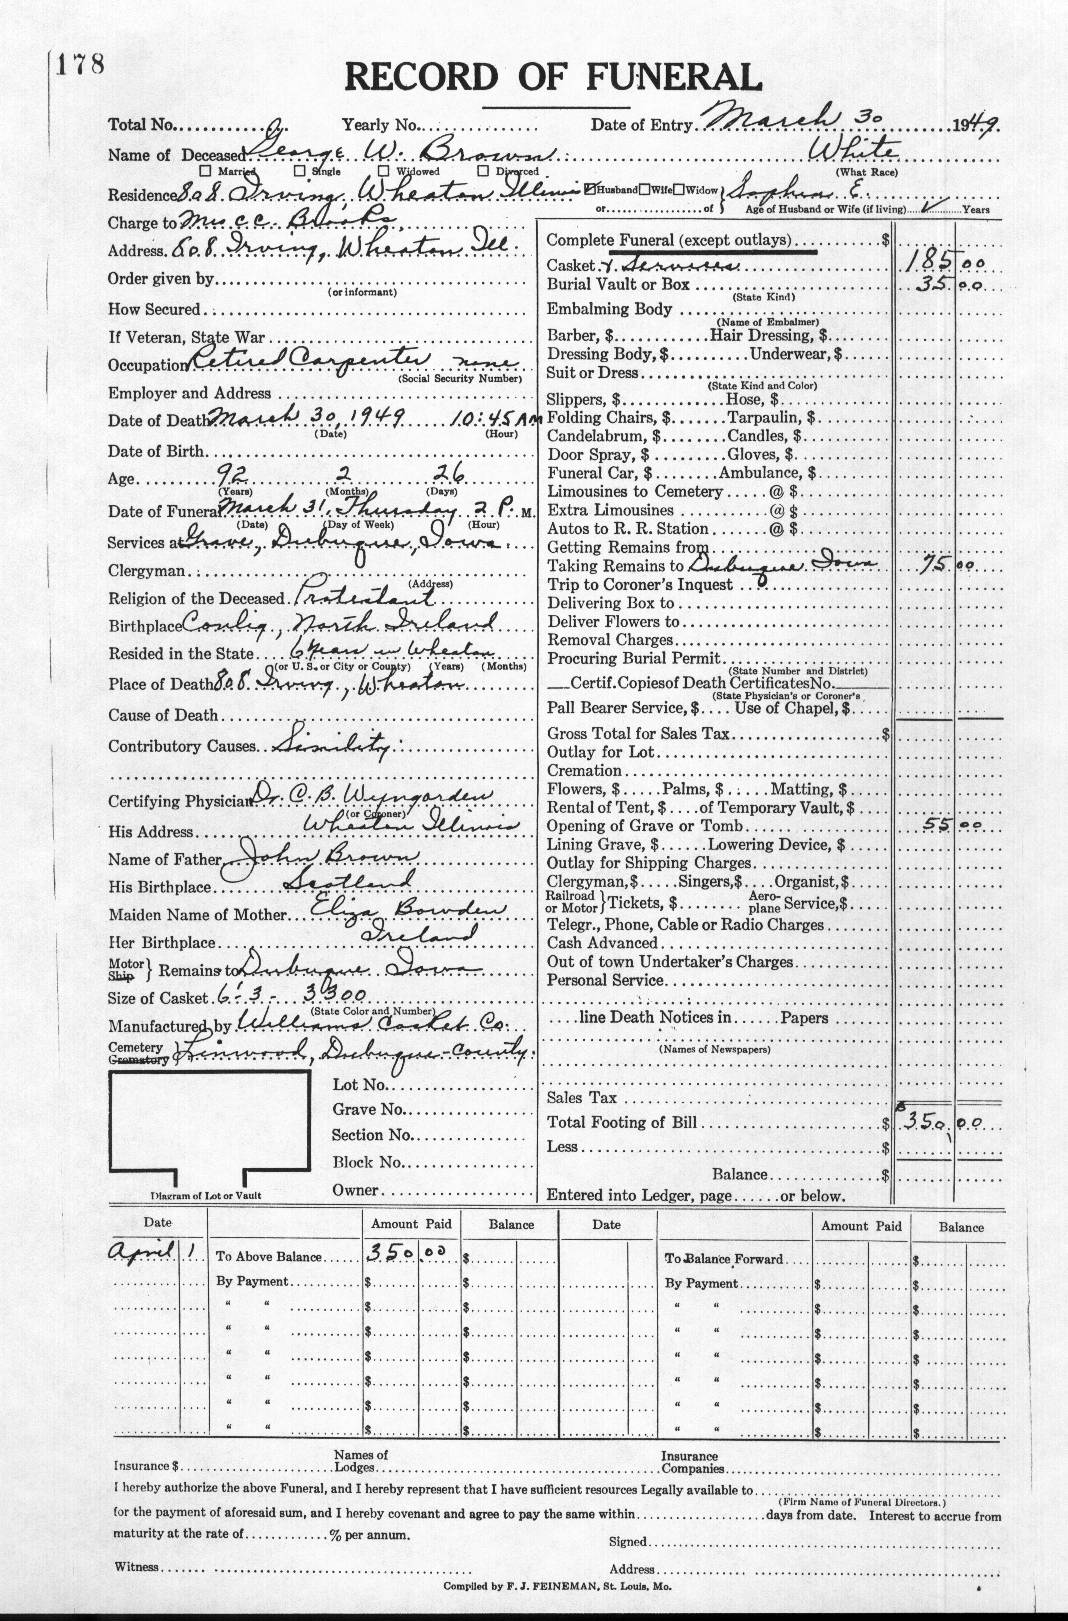 178
RECORD OF FUNERAL
Total No. Yearly No. Date of Entry March 30 1949
Name of Deceased George W. Brown White
Married Single Widowed Divorced (What Race)
Residence 808 Irving, Wheaton Illinois Husband Wife Widow } Sophia E.
or of } Age of Husband or Wife (if living) ✓ Years
Charge to Mrs C C. Brooks
Address. 808 Irving, Wheaton Ill.
Order given by
(or informant)
How Secured
If Veteran, State War
Occupation Retired Carpenter none
(Social Security Number)
Employer and Address
Date of Death March 30, 1949 10:45 AM
(Date) (Hour)
Date of Birth
Age 92 2 26
(Years) (Months) (Days)
Date of Funeral March 31, Thursday 2 P. M.
(Date) (Day of Week) (Hour)
Services at Grave, Dubuque, Iowa
Clergyman
(Address)
Religion of the Deceased Protestant
Birthplace Conlig, North Ireland
Resided in the State 6 Years in Wheaton
(or U. S. or City or County) (Years) (Months)
Place of Death 808 Irving, Wheaton
Cause of Death
Contributory Causes Sinility
Certifying Physician Dr. C. B. Wyngarden
(or Coroner)
His Address Wheaton Illinois
Name of Father John Brown
His Birthplace Scotland
Maiden Name of Mother Eliza Bowden
Her Birthplace Ireland
Motor
Ship } Remains to Dubuque Iowa
Size of Casket 6'-3- 3300
(State Color and Number)
Manufactured by Williams Casket Co.
Cemetery
Crematory } Linwood, Dubuque-County.
Lot No.
Grave No.
Section No.
Block No.
Owner
Diagram of Lot or Vault
Complete Funeral (except outlays) $
Casket & Services 185 00
Burial Vault or Box 35 00
(State Kind)
Embalming Body
(Name of Embalmer)
Barber, $ Hair Dressing, $
Dressing Body, $ Underwear, $
Suit or Dress
(State Kind and Color)
Slippers, $ Hose, $
Folding Chairs, $ Tarpaulin, $
Candelabrum, $ Candles, $
Door Spray, $ Gloves, $
Funeral Car, $ Ambulance, $
Limousines to Cemetery @ $
Extra Limousines @ $
Autos to R. R. Station @ $
Getting Remains from
Taking Remains to Dubuque Iowa 75 00
Trip to Coroner's Inquest
Delivering Box to
Deliver Flowers to
Removal Charges
Procuring Burial Permit
(State Number and District)
Certif. Copies of Death Certificates No.
(State Physician's or Coroner's
Pall Bearer Service, $ Use of Chapel, $
Gross Total for Sales Tax $
Outlay for Lot
Cremation
Flowers, $ Palms, $ Matting, $
Rental of Tent, $ of Temporary Vault, $
Opening of Grave or Tomb 55 00
Lining Grave, $ Lowering Device, $
Outlay for Shipping Charges
Clergyman, $ Singers, $ Organist, $
Railroad
or Motor } Tickets, $ Aero-
plane Service, $
Telegr., Phone, Cable or Radio Charges
Cash Advanced
Out of town Undertaker's Charges
Personal Service
line Death Notices in Papers
(Names of Newspapers)
Sales Tax
Total Footing of Bill $ 350 00
Less $
Balance $
Entered into Ledger, page or below.
Date Amount Paid Balance Date Amount Paid Balance
April 1 To Above Balance 350.00 $ To Balance Forward $
By Payment $ $ By Payment $ $
" " $ $ " " $ $
" " $ $ " " $ $
" " $ $ " " $ $
" " $ $ " " $ $
" " $ $ " " $ $
" " $ $ " " $ $
Insurance $ Names of
Lodges Insurance
Companies
I hereby authorize the above Funeral, and I hereby represent that I have sufficient resources Legally available to
(Firm Name of Funeral Directors.)
for the payment of aforesaid sum, and I hereby covenant and agree to pay the same within days from date. Interest to accrue from
maturity at the rate of % per annum.
Signed
Witness Address
Compiled by F. J. FEINEMAN, St. Louis, Mo.